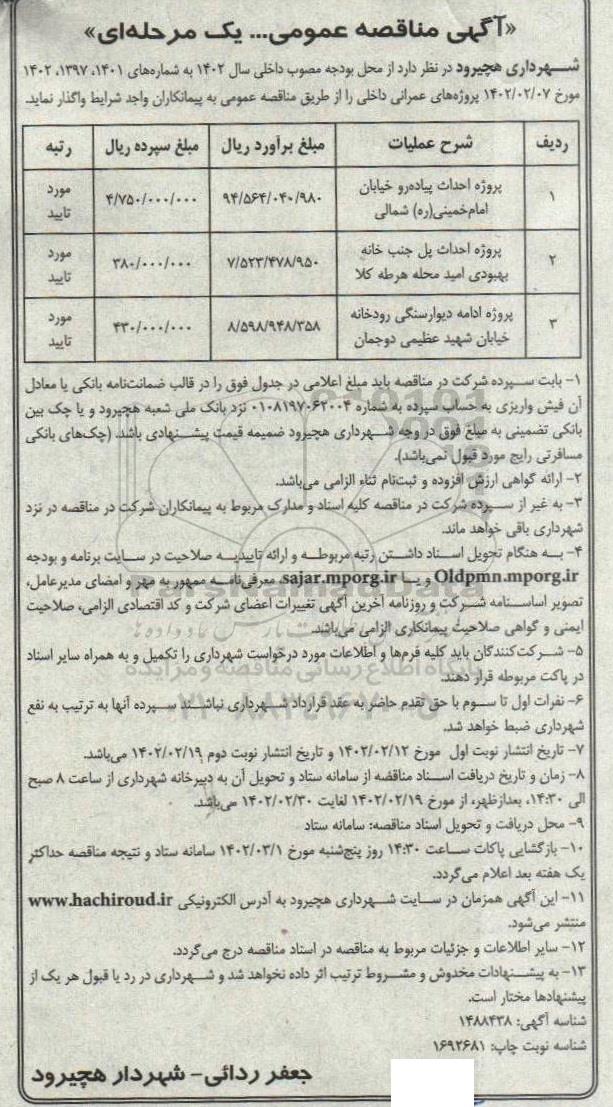 «آگهی مناقصه عمومی... یک مرحله‌ای»
شهرداری هچیرود در نظر دارد از محل بودجه مصوب داخلی سال ۱۴۰۲ به شماره‌های ۱۴۰۱، ۱۳۹۷، ۱۴۰۲
مورخ ۱۴۰۲/۰۲/۰۷ پروژه‌های عمرانی داخلی را از طریق مناقصه عمومی به پیمانکاران واجد شرایط واگذار نماید.
ردیف شرح عملیات مبلغ برآورد ریال مبلغ سپرده ریال رتبه
۱ پروژه احداث پیاده‌رو خیابان امام‌خمینی(ره) شمالی ۹۴/۵۶۴/۰۴۰/۹۸۰ ۴/۷۵۰/۰۰۰/۰۰۰ مورد تایید
۲ پروژه احداث پل جنب خانه بهبودی امید محله هرطه کلا ۷/۵۲۳/۴۷۸/۹۵۰ ۳۸۰/۰۰۰/۰۰۰ مورد تایید
۳ پروژه ادامه دیوارسنگی رودخانه خیابان شهید عظیمی دوجمان ۸/۵۹۸/۹۴۸/۳۵۸ ۴۳۰/۰۰۰/۰۰۰ مورد تایید
۱- بابت سپرده شرکت در مناقصه باید مبلغ اعلامی در جدول فوق را در قالب ضمانت‌نامه بانکی یا معادل
آن فیش واریزی به حساب سپرده به شماره ۰۱۰۸۱۹۷۰۶۲۰۰۴ نزد بانک ملی شعبه هچیرود و یا چک بین
بانکی تضمینی به مبلغ فوق در وجه شهرداری هچیرود ضمیمه قیمت پیشنهادی باشد. (چک‌های بانکی
مسافرتی رایج مورد قبول نمی‌باشد).
۲- ارائه گواهی ارزش افزوده و ثبت‌نام ثناء الزامی می‌باشد.
۳- به غیر از سپرده شرکت در مناقصه کلیه اسناد و مدارک مربوط به پیمانکاران شرکت در مناقصه در نزد
شهرداری باقی خواهد ماند.
۴- به هنگام تحویل اسناد داشتن رتبه مربوطه و ارائه تاییدیه صلاحیت در سایت برنامه و بودجه
Oldpmn.mporg.ir و یا sajar.mporg.ir، معرفی‌نامه ممهور به مهر و امضای مدیرعامل،
تصویر اساسنامه شرکت و روزنامه آخرین آگهی تغییرات اعضای شرکت و کد اقتصادی الزامی، صلاحیت
ایمنی و گواهی صلاحیت پیمانکاری الزامی می‌باشد.
۵- شرکت‌کنندگان باید کلیه فرم‌ها و اطلاعات مورد درخواست شهرداری را تکمیل و به همراه سایر اسناد
در پاکت مربوطه قرار دهند.
۶- نفرات اول تا سوم با حق تقدم حاضر به عقد قرارداد شهرداری نباشند سپرده آنها به ترتیب به نفع
شهرداری ضبط خواهد شد.
۷- تاریخ انتشار نوبت اول مورخ ۱۴۰۲/۰۲/۱۲ و تاریخ انتشار نوبت دوم ۱۴۰۲/۰۲/۱۹ می‌باشد.
۸- زمان و تاریخ دریافت اسناد مناقصه از سامانه ستاد و تحویل آن به دبیرخانه شهرداری از ساعت ۸ صبح
الی ۱۴:۳۰، بعدازظهر، از مورخ ۱۴۰۲/۰۲/۱۹ لغایت ۱۴۰۲/۰۲/۳۰ می‌باشد.
۹- محل دریافت و تحویل اسناد مناقصه: سامانه ستاد
۱۰- بازگشایی پاکات ساعت ۱۴:۳۰ روز پنج‌شنبه مورخ ۱۴۰۲/۰۳/۱ سامانه ستاد و نتیجه مناقصه حداکثر
یک هفته بعد اعلام می‌گردد.
۱۱- این آگهی همزمان در سایت شهرداری هچیرود به آدرس الکترونیکی www.hachiroud.ir
منتشر می‌شود.
۱۲- سایر اطلاعات و جزئیات مربوط به مناقصه در اسناد مناقصه درج می‌گردد.
۱۳- به پیشنهادات مخدوش و مشروط ترتیب اثر داده نخواهد شد و شهرداری در رد یا قبول هر یک از
پیشنهادها مختار است.
شناسه آگهی: ۱۴۸۸۴۳۸
شناسه نوبت چاپ: ۱۶۹۲۶۸۱
جعفر ردائی- شهردار هچیرود